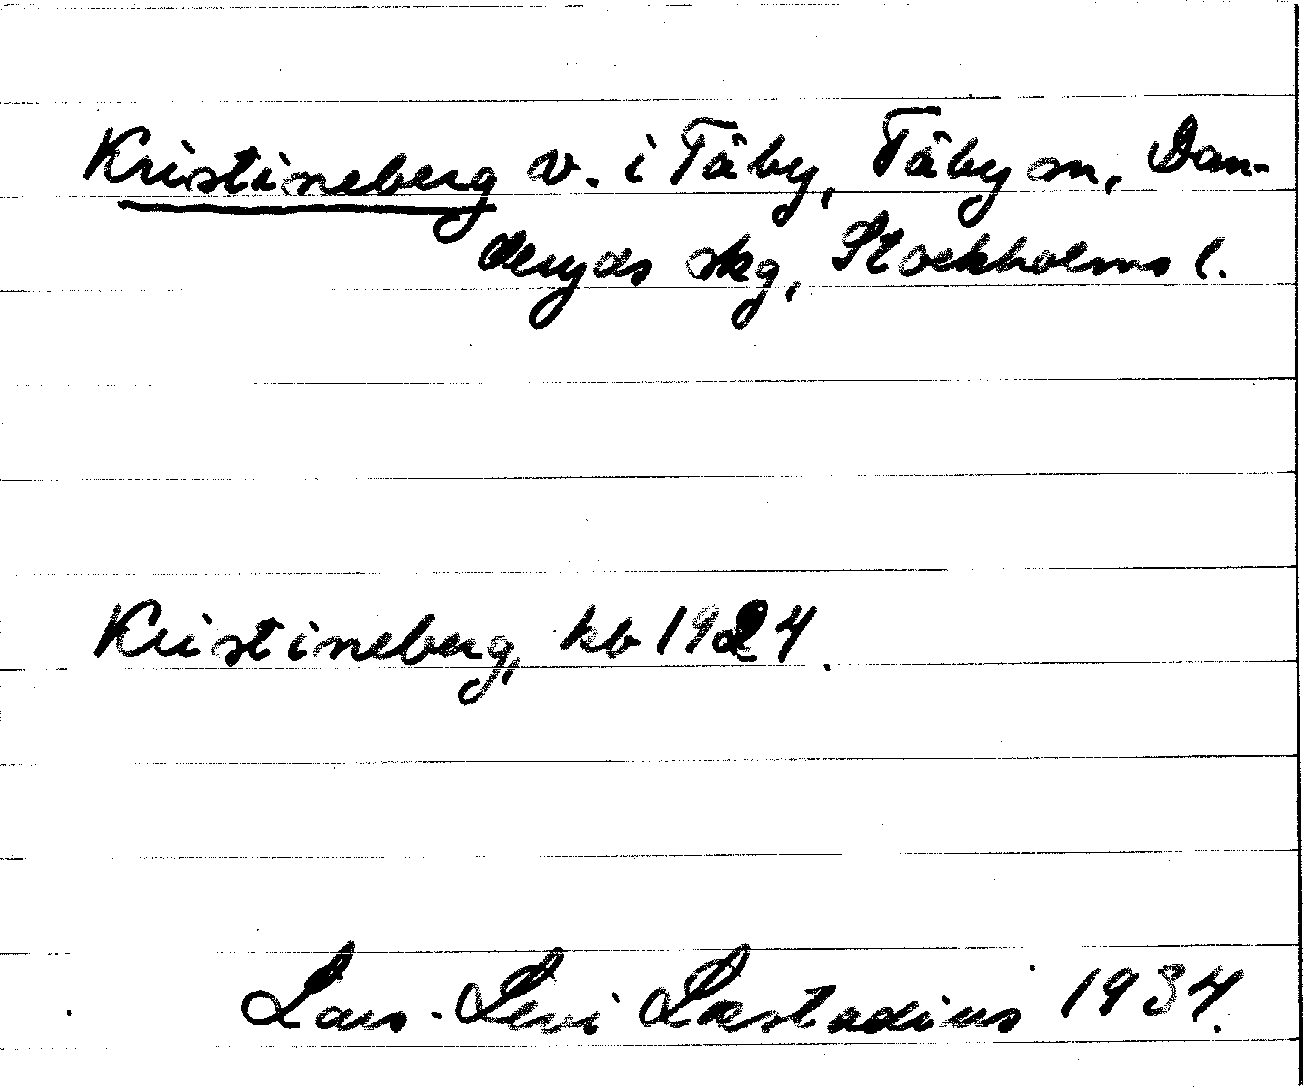 Kristineberg v. i Täby, Täby sn, Dan-
deryds skg, Stockholms l.
Kristineberg, kb 1924.
Lars-Levi Læstadius 1934.